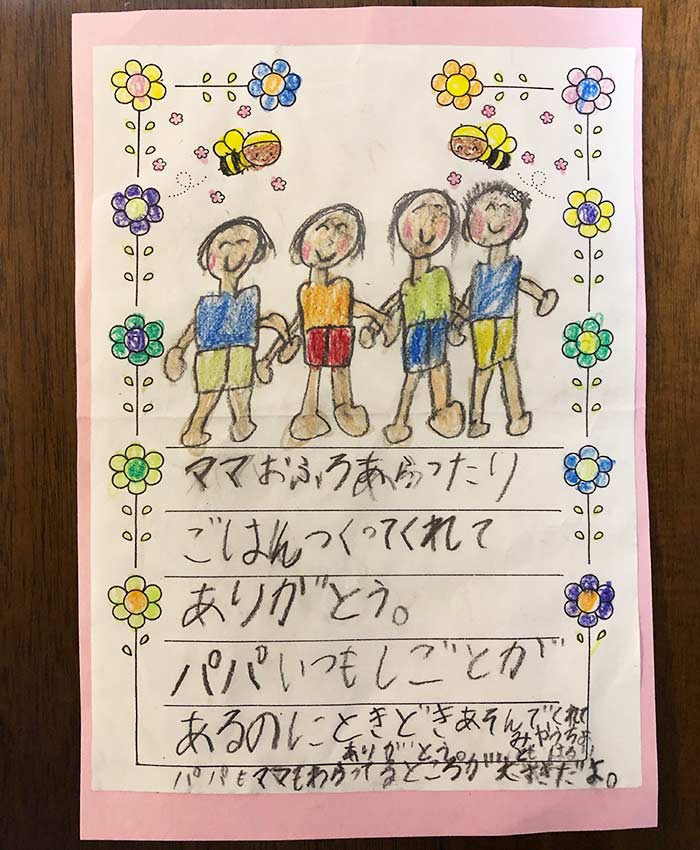 ママおふろあらったり
ごはんつくってくれて
ありがとう。
パパいつもしごとが
あるのにときどきあそんでくれて
ありがとう。
パパもママもわらってるところが大すきだよ。